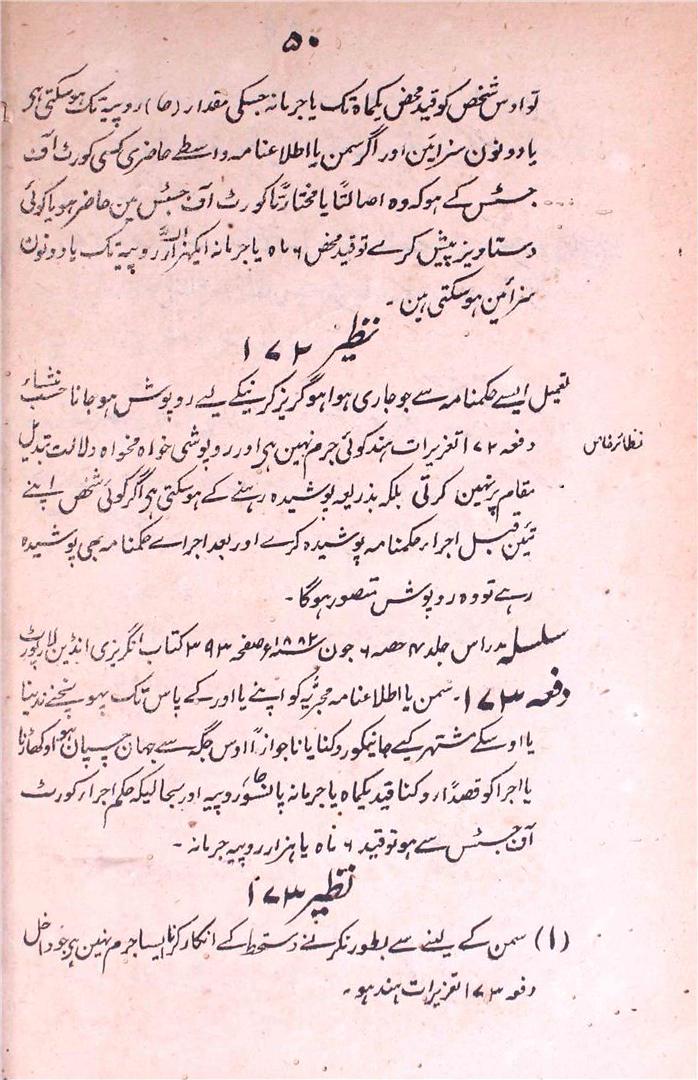 ۵۰
تو اوس شخص کو قید محض یکماہ تک یا جرمانہ جسکی مقدار (صما) روپیہ تک ہوسکتی ہی
یا دونون سزائین اور اگر سمن یا اطلاعنامہ واسطے حاضری کسی کورٹ آف
جسٹس کے ہو کہ وہ اصالتًا یا مختارتًا کورٹ آف جسٹس مین حاضر ہو یا کوئی
دستاویز پیش کرے تو قید محض ۶ ماہ یا جرمانہ ایکہزار روپیہ تک یا دونون
سزائین ہوسکتی ہین ۔
نظیر ۱۷۲
تعمیل ایسے حکمنامہ سے جو جاری ہوا ہو گریز کرنیکے لیے روپوش ہو جانا حسب منشاء
دفعہ ۱۷۲ تعزیرات ہند کوئی جرم نہین ہی اور روپوشی خواہ مخواہ دلالت تبدیل
نظائر خاص
مقام پر نہین کرتی بلکہ بذریعہ پوشیدہ رہنے کے ہوسکتی ہی اگر کوئی شخص اپنے
تئین قبل اجراء حکمنامہ پوشیدہ کرے اور بعد اجراے حکمنامہ بھی پوشیدہ
رہے تو وہ روپوش متصور ہوگا ۔
سلسلہ مدراس جلد ۴ حصہ ۶ جون ۱۸۸۲ء صفحہ ۳۹۳ کتاب انگریزی انڈین لارپورٹ
دفعہ ۱۷۳ ۔ سمن یا اطلاعنامہ مجریہ کو اپنے یا اور کے پاس تک پہونچنے ندینا
یا اوسکے مشتہر کیے جانیکو روکنا یا ناجوازاً اوس جگہ سے جہان چسپان ہو اوکھاڑنا
یا اجرا کو قصداً روکنا قید یکماہ یا جرمانہ پانسو روپیہ اور بحالیکہ حکم اجراء کورٹ
آف جسٹس سے ہو تو قید ۶ ماہ یا ہزار روپیہ جرمانہ ۔
نظیر ۱۷۳
(۱) سمن کے لینے سے بطور نکرنے دستخط کے انکار کرنا ایسا جرم نہین ہی جو داخل
دفعہ ۱۷۳ تعزیرات ہند ہو ۔